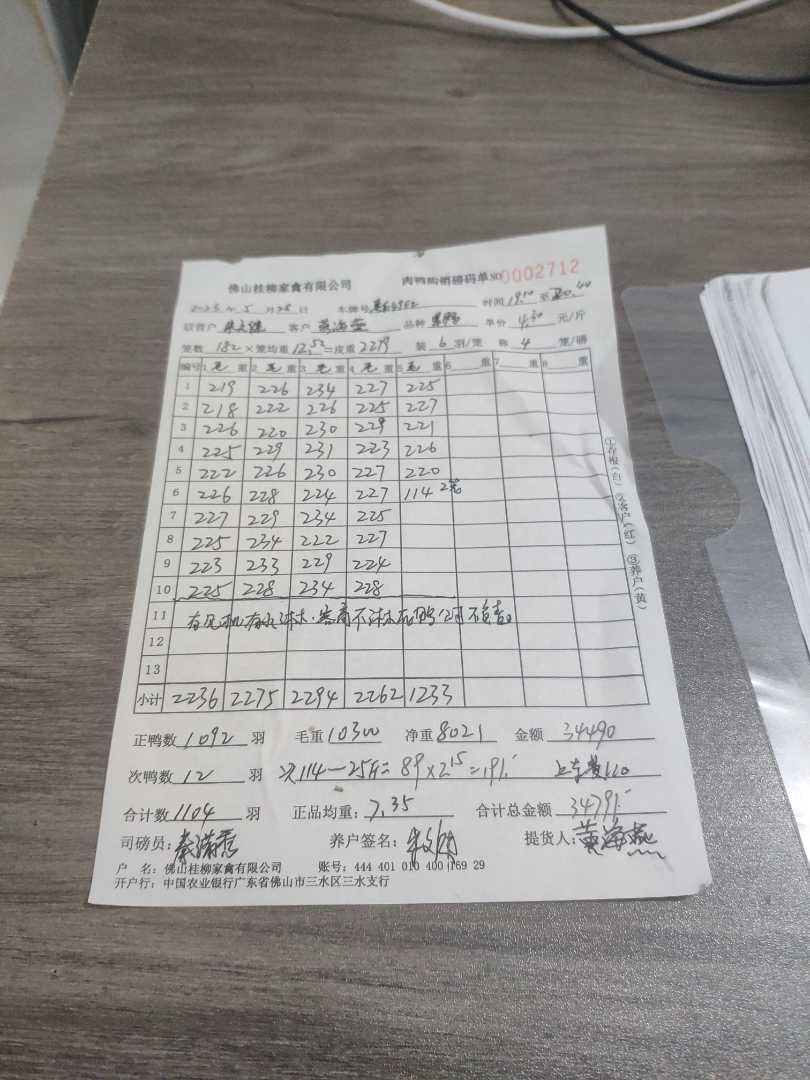 佛山桂柳家禽有限公司 肉鸭购销磅码单 NO 0002712
2023 年 5 月 28 日 车牌号 时间 19:10 至 20:40
联营户 客户 黄海燕 品种 单价 4.30 元/斤
笼数 182 × 笼均重 12.52 = 皮重 2279 装 6 羽/笼 称 4 笼/磅
编号 1 毛 重 2 毛 重 3 毛 重 4 毛 重 5 毛 重 6 重 7 重 8 重
1 219 226 234 227 225
2 218 222 226 225 227
3 226 220 230 229 221
4 225 229 231 223 226
5 222 226 230 227 220
6 226 228 224 227 114 2笼
7 227 229 234 225
8 225 234 222 227
9 223 233 229 224
10 225 228 234 228
11
12
13
小计 2236 2275 2294 2262 1233
正鸭数 1092 羽 毛重 10300 净重 8021 金额 34490
次鸭数 12 羽 次114-25斤=89×2.15=191.- 上车费110
合计数 1104 羽 正品均重: 7.35 合计总金额 34791.-
司磅员: 养户签名: 提货人: 黄海燕
户 名: 佛山桂柳家禽有限公司 账号: 444 401 010 400 169 29
开户行: 中国农业银行广东省佛山市三水区三水支行
①存根(白) ②客户(红) ③养户(黄)